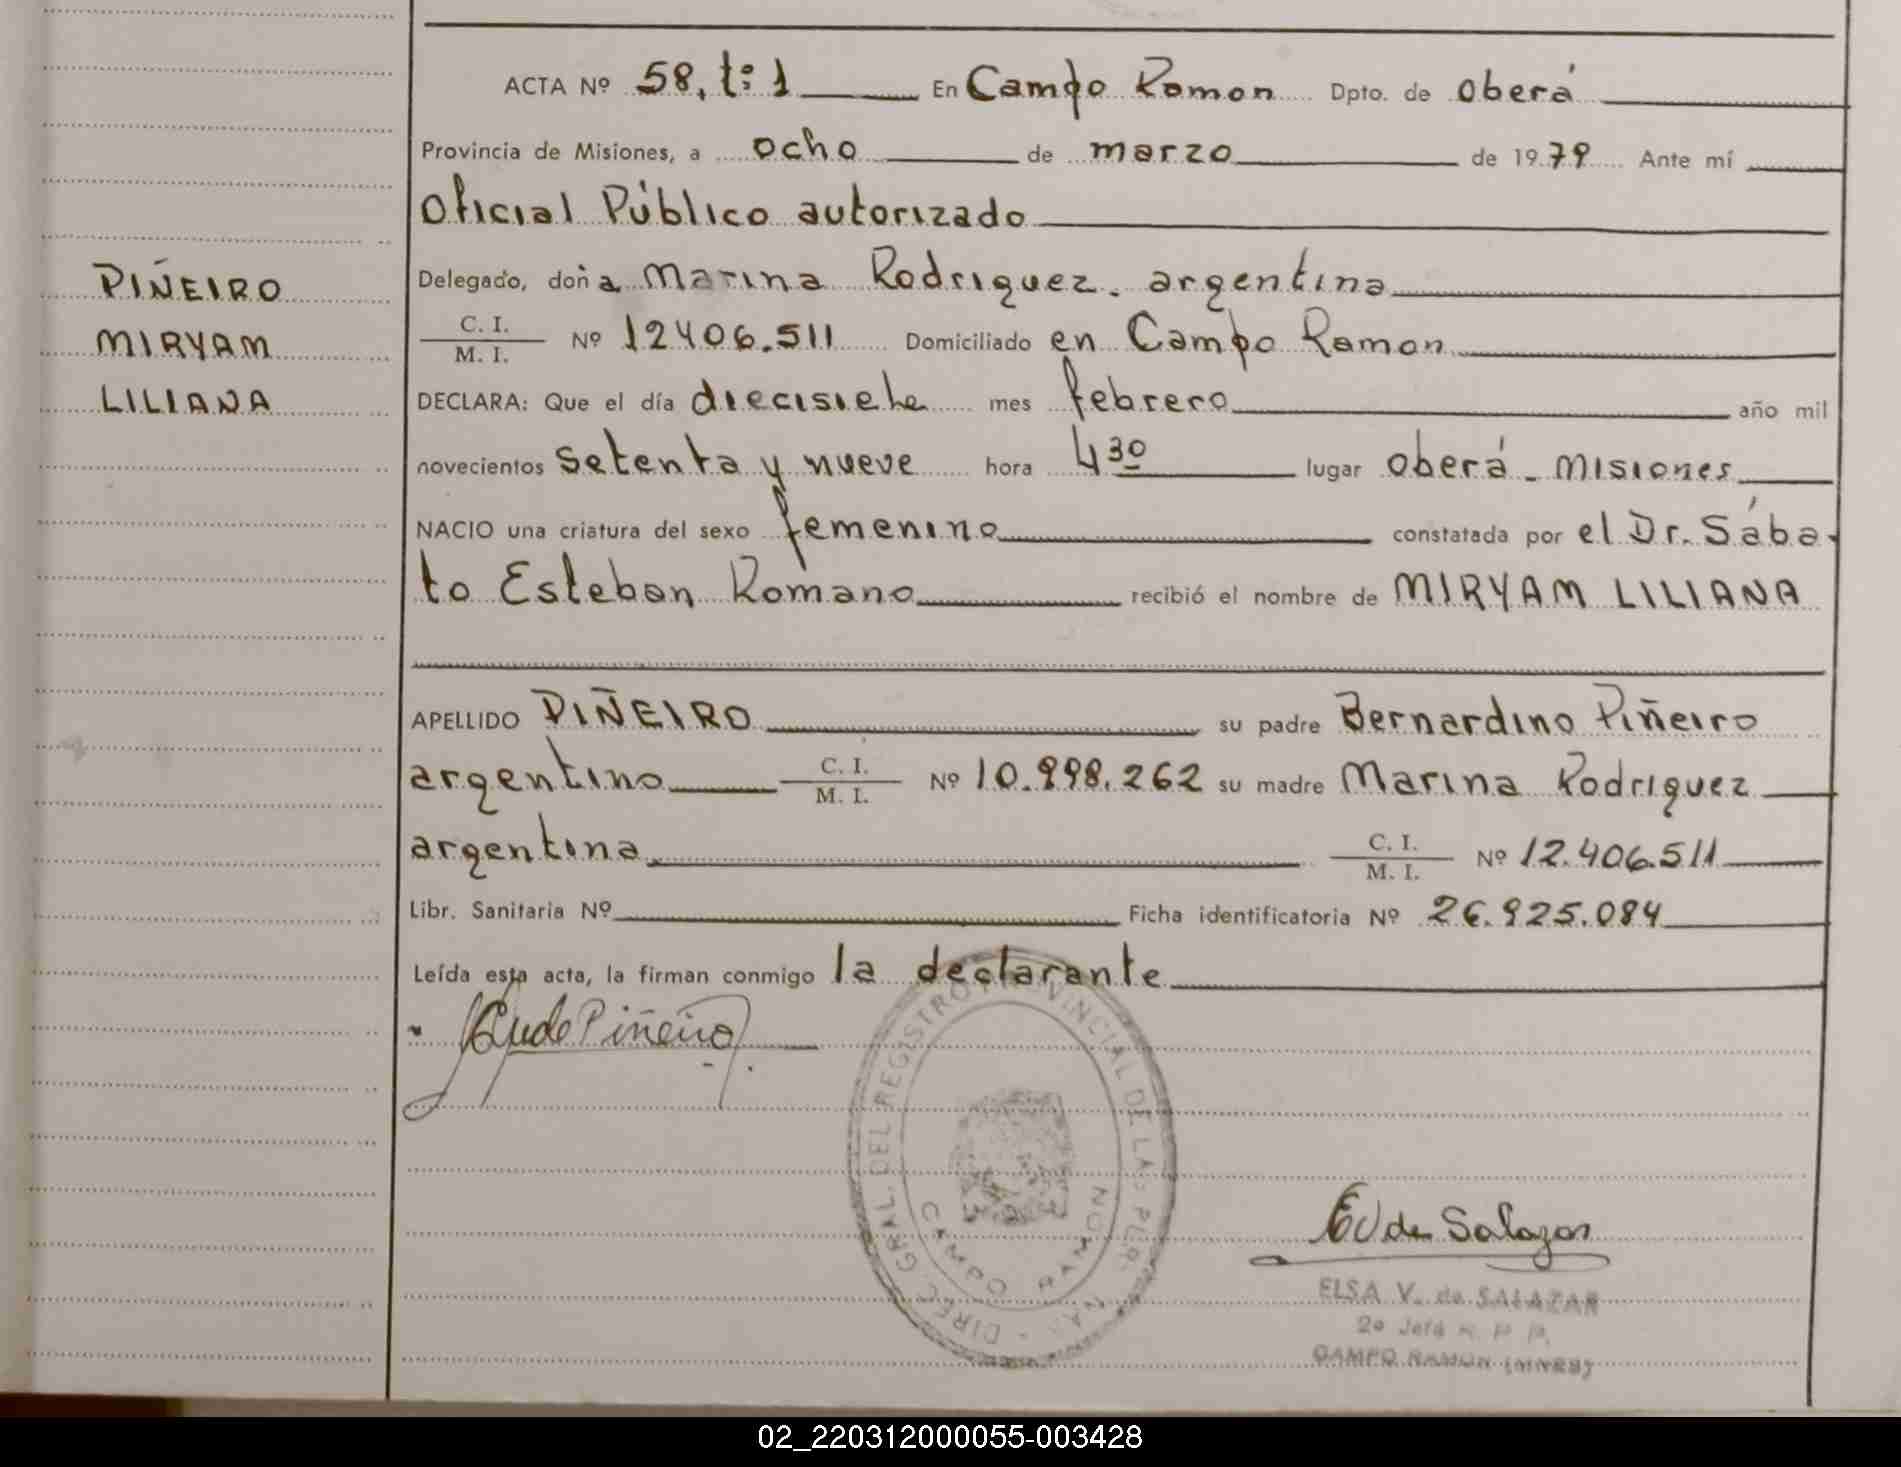 ACTA Nº 58, t: 1 En Campo Ramon Dpto. de oberá
Provincia de Misiones, a ocho de marzo de 1979 Ante mí
Oficial Público autorizado
PIÑEIRO
MIRYAM
LILIANA
Delegado, doña Marina Rodriguez. argentina
C. I.
M. I. Nº 12406.511 Domiciliado en Campo Ramon
DECLARA: Que el día diecisiete mes febrero año mil
novecientos setenta y nueve hora 4 30 lugar oberá - Misiones
NACIO una criatura del sexo femenino constatada por el Dr. Sába-
to Esteban Romano recibió el nombre de MIRYAM LILIANA
APELLIDO PIÑEIRO su padre Bernardino Piñeiro
argentino C. I.
M. I. Nº 10.998.262 su madre Marina Rodriguez
argentina C. I.
M. I. Nº 12.406.511
Libr. Sanitaria Nº Ficha identificatoria Nº 26.925.084
Leída esta acta, la firman conmigo la declarante
de Piñeiro
DIREC. GRAL. DEL REGISTRO PROVINCIAL DE LAS PER
CAMPO RAMON
EV de Salazar
ELSA V. de SALAZAR
CAMPO RAMON (MNES)
02_220312000055-003428